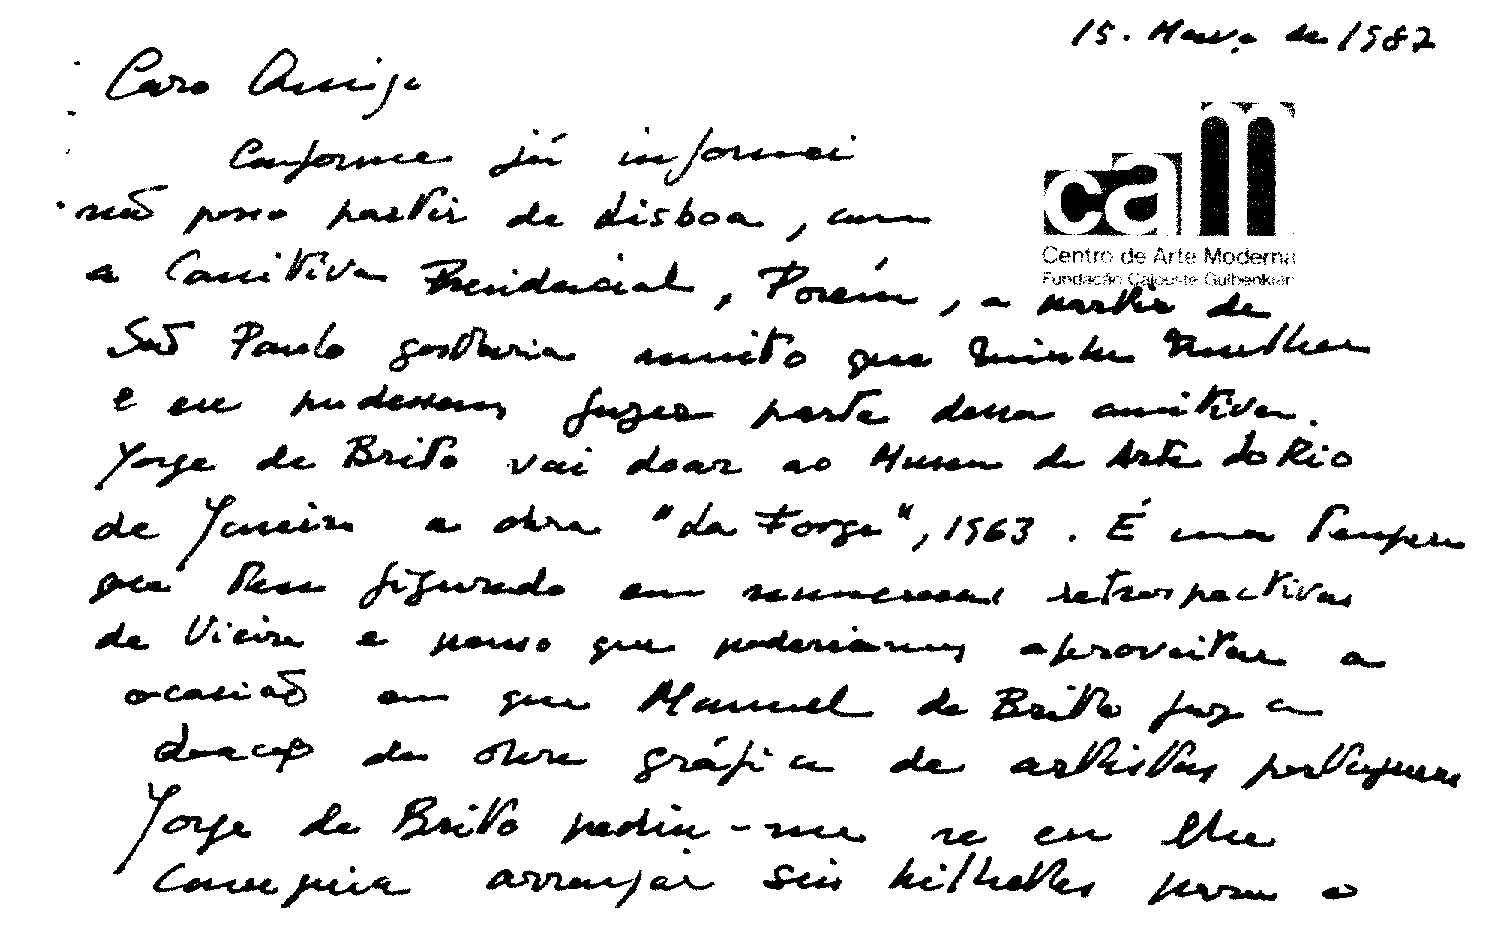 15. Março de 1987
Caro Amigo
Conforme já informei
não posso partir de Lisboa, com
a Comitiva Presidencial, Porém, a partir de
cam
Centro de Arte Moderna
Fundação Calouste Gulbenkian
São Paulo gostaria muito que minha mulher
e eu pudessemos fazer parte dessa comitiva.
Jorge de Brito vai doar ao Museu de Arte do Rio
de Janeiro a obra "La Forge", 1963. É uma tempera
que tem figurado em numerosas retrospectivas
de Vieira e penso que poderiamos aproveitar a
ocasião em que Manuel de Brito faz a
doação da obra gráfica de artistas portugueses
Jorge de Brito pediu-me se eu lhe
conseguia arranjar seis bilhetes para o